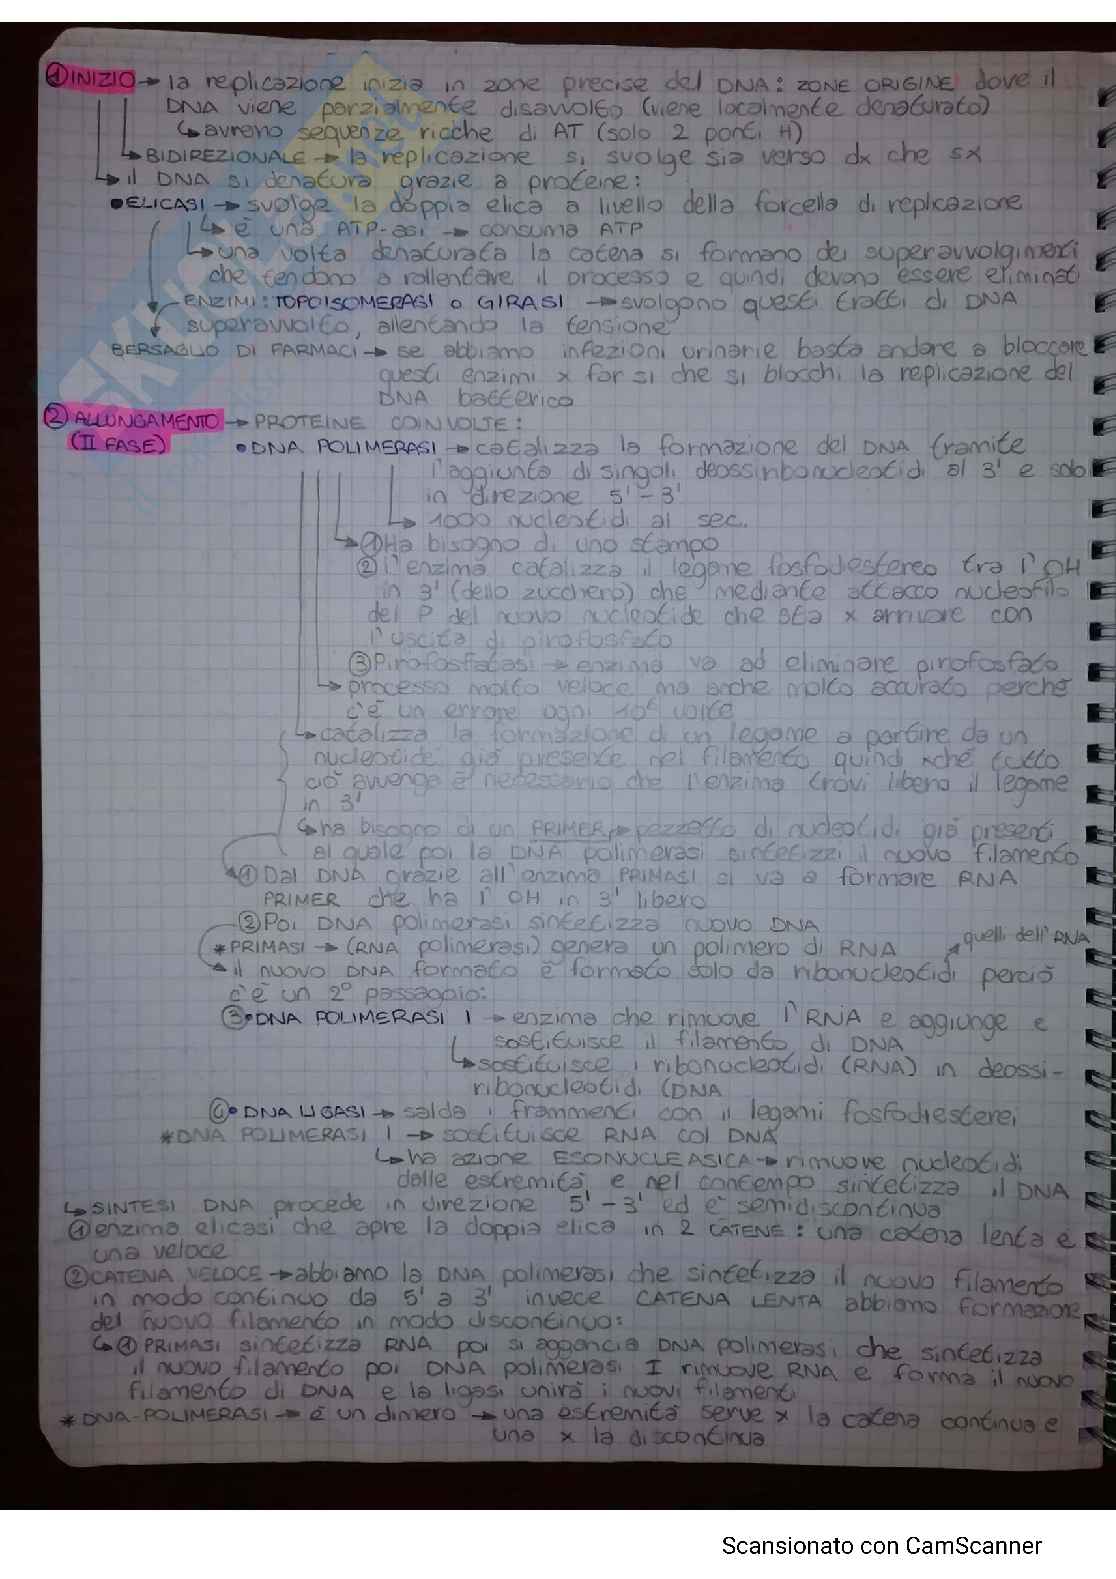 ① INIZIO → la replicazione inizia in zone precise del DNA: ZONE ORIGINE dove il
DNA viene parzialmente disavvolto (viene localmente denaturato)
↳ avremo sequenze ricche di AT (solo 2 ponti H)
↳ BIDIREZIONALE → la replicazione si svolge sia verso dx che sx
↳ il DNA si denatura grazie a proteine:
• ELICASI → svolge la doppia elica a livello della forcella di replicazione
↳ è una ATP-asi → consuma ATP
↳ una volta denaturata la catena si formano dei superavvolgimenti
che tendono a rallentare il processo e quindi devono essere eliminati
ENZIMI: TOPOISOMERASI o GIRASI → svolgono questi tratti di DNA
superavvolto, allentando la tensione
BERSAGLIO DI FARMACI → se abbiamo infezioni urinarie basta andare a bloccare
questi enzimi x far si che si blocchi la replicazione del
DNA batterico
② ALLUNGAMENTO → PROTEINE COINVOLTE:
(II FASE) • DNA POLIMERASI → catalizza la formazione del DNA tramite
l'aggiunta di singoli deossiribonucleotidi al 3' e solo
in direzione 5'-3'
↳ 1000 nucleotidi al sec.
↳ ① Ha bisogno di uno stampo
② l'enzima catalizza il legame fosfodiestereo tra l'OH
in 3' (dello zucchero) che mediante attacco nucleofilo
del P del nuovo nucleotide che sta x arrivare con
l'uscita di pirofosfato
③ Pirofosfatasi → enzima va ad eliminare pirofosfato
↳ processo molto veloce ma anche molto accurato perché
c'è un errore ogni 10⁶ volte
↳ catalizza la formazione di un legame a partire da un
nucleotide già presente nel filamento quindi xché tutto
ciò avvenga è necessario che l'enzima trovi libero il legame
in 3'
↳ ha bisogno di un PRIMER → pezzetto di nucleotidi già presenti
al quale poi la DNA polimerasi sintetizzi il nuovo filamento
① Dal DNA grazie all'enzima PRIMASI si va a formare RNA
PRIMER che ha l'OH in 3' libero
② Poi DNA polimerasi sintetizza nuovo DNA
* PRIMASI → (RNA polimerasi) genera un polimero di RNA
quelli dell'RNA
il nuovo DNA formato è formato solo da ribonucleotidi perciò
c'è un 2° passaggio:
③ • DNA POLIMERASI I → enzima che rimuove l'RNA e aggiunge e
sostituisce il filamento di DNA
↳ sostituisce i ribonucleotidi (RNA) in deossi-
ribonucleotidi (DNA
④ • DNA LIGASI → salda i frammenti con i legami fosfodiesterei
* DNA POLIMERASI I → sostituisce RNA col DNA
↳ ha azione ESONUCLEASICA → rimuove nucleotidi
dalle estremità e nel contempo sintetizza il DNA
↳ SINTESI DNA procede in direzione 5'-3' ed è semidiscontinua
① enzima elicasi che apre la doppia elica in 2 CATENE: una catena lenta e
una veloce
② CATENA VELOCE → abbiamo la DNA polimerasi che sintetizza il nuovo filamento
in modo continuo da 5' a 3' invece CATENA LENTA abbiamo formazione
del nuovo filamento in modo discontinuo:
↳ ① PRIMASI sintetizza RNA poi si aggancia DNA polimerasi che sintetizza
il nuovo filamento poi DNA polimerasi I rimuove RNA e forma il nuovo
filamento di DNA e la ligasi unirà i nuovi filamenti
* DNA-POLIMERASI → è un dimero → una estremità serve x la catena continua e
una x la discontinua
Scansionato con CamScanner